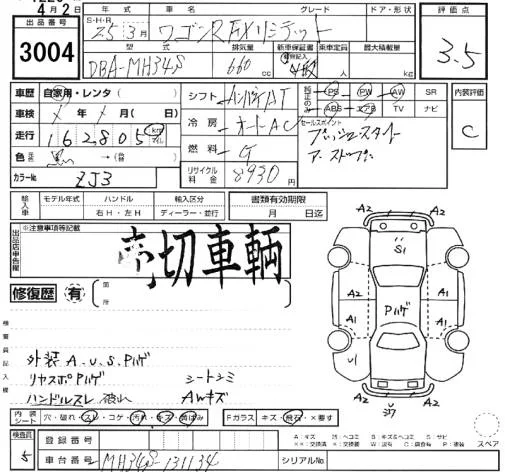 4月2日
出品番号
3004
年式 車名 グレード ドア・形状 評価点
S・H・R
25 3月 ワゴンR FXリミテッド
3.5
型式 排気量 新車保証書 乗車定員 最大積載量
DBA-MH34S 660 cc 4 kg
車歴 自家用・レンタ( )
車検 年 月( 日)
走行 162,805 km マイル
色
カラーNo. ZJ3
シフト インパネAT
冷房 オートAC
燃料 G
リサイクル料金 8930 円
純正のみ PS PW AW SR
ABS エアB TV ナビ
セールスポイント
プッシュスタート
ア.ストップ
内装評価
C
輸入車 モデル年式 ハンドル 輸入区分 書類有効期限
年 右H・左H ディーラー・並行 月 日迄
出品店申告欄
※注意事項等記載
売切車輌
修復歴 有 箇所
検査員記入欄
外装 A.U.S.Pハゲ
リヤスポPハゲ シートシミ
ハンドルスレ AWキズ
A2 A2
S1
A2 A2
Pハゲ
A1 A1
U1 A1
A2 A2
内装シート 穴・破れ・スレ・コゲ・汚れ・キズ・傷はみ Fガラス キズ・飛石・×要す
A:キズ 凹:ヘコミ B:キズ&ヘコミ S:サビ
××:交換済 W:波有 C:腐食 X:交換 P:塗装
スペア
検査員 5
登録番号
車台番号 MH34S-131134 シリアルNo.